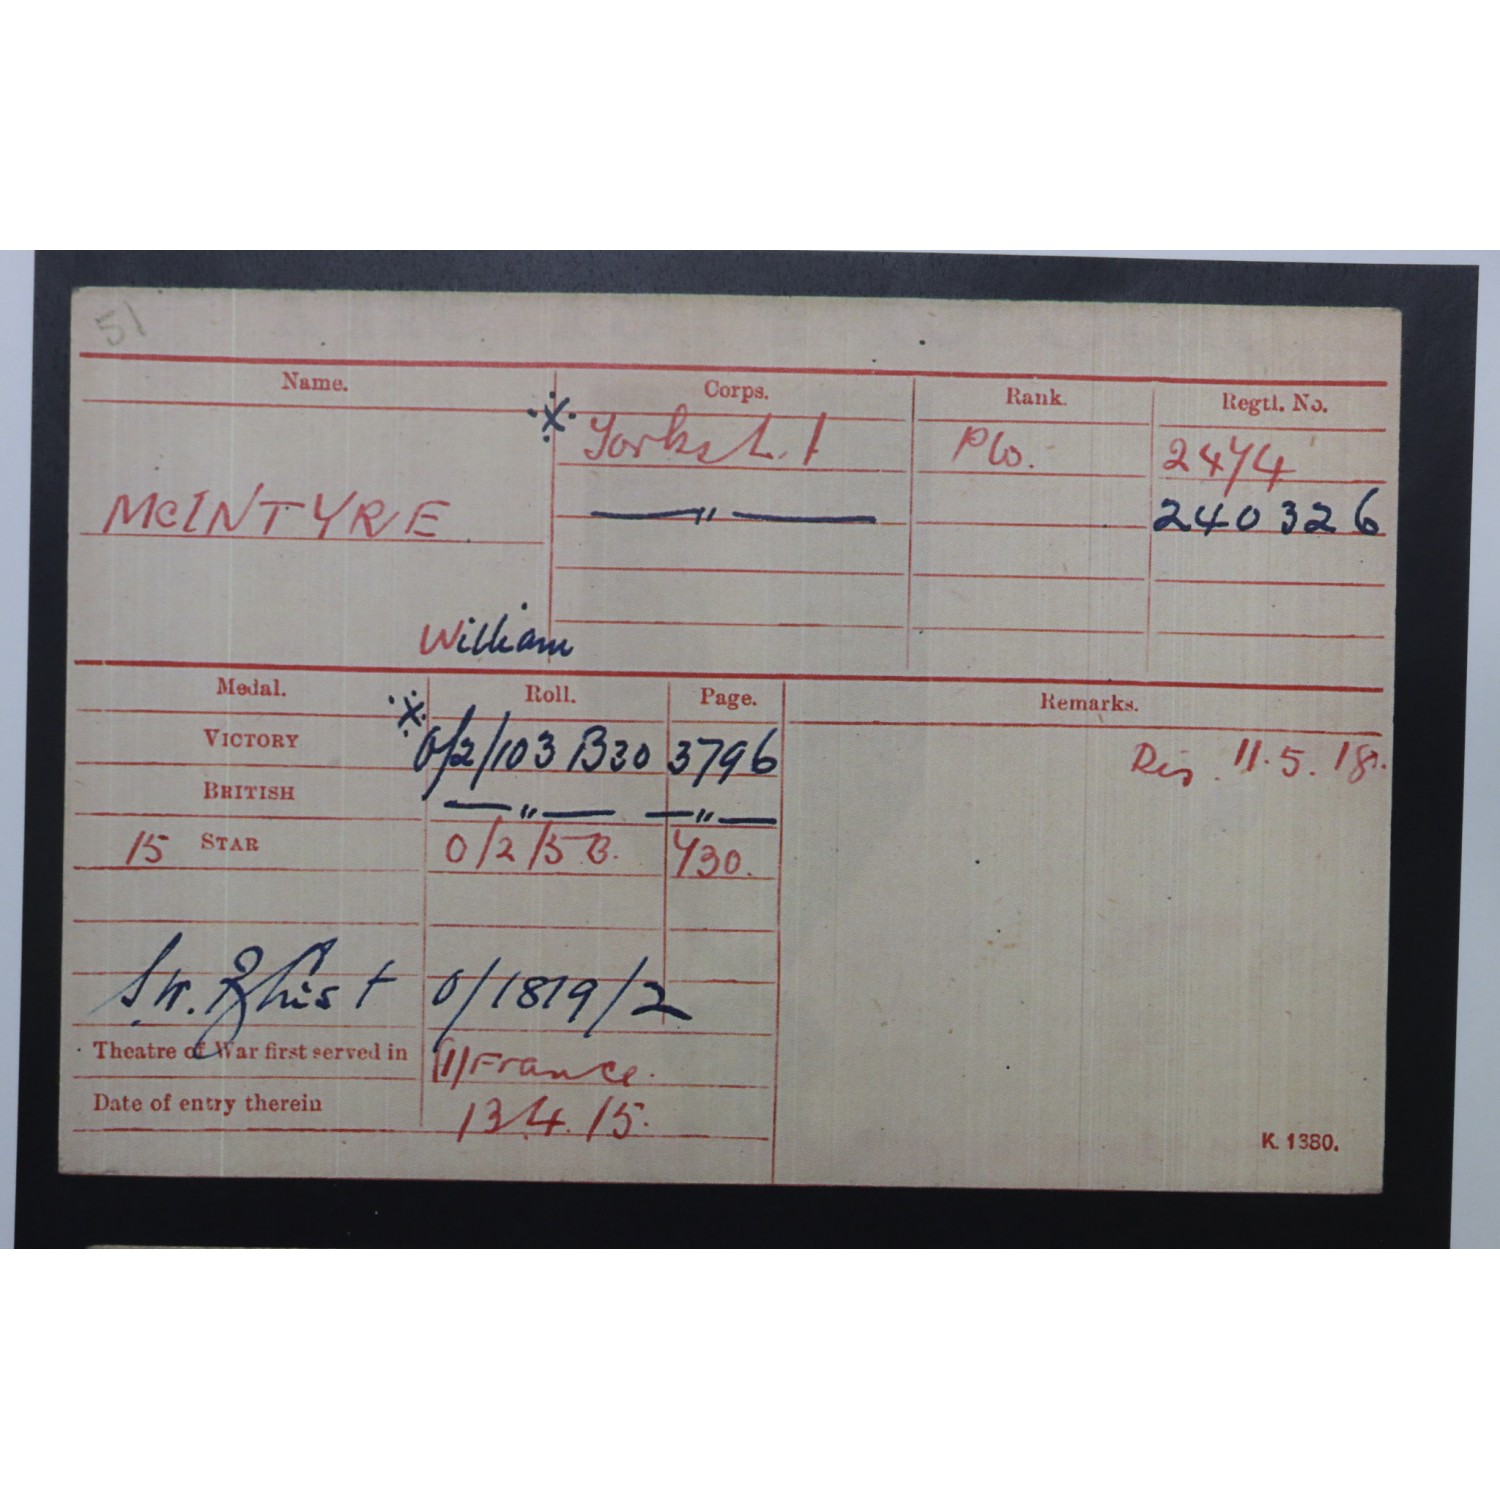 51
Name. Corps. Rank. Regtl. No.
※ Yorks. L.I Pte. 2474
MCINTYRE —"— 240326
William
Medal. Roll. Page. Remarks.
VICTORY ※ O/2/103 B30 3796 Dis. 11.5.18.
BRITISH —"— —"—
15 STAR O/2/5 B. 730.
O/1819/2
Theatre of War first served in (1) France.
Date of entry therein 13.4.15.
K. 1380.